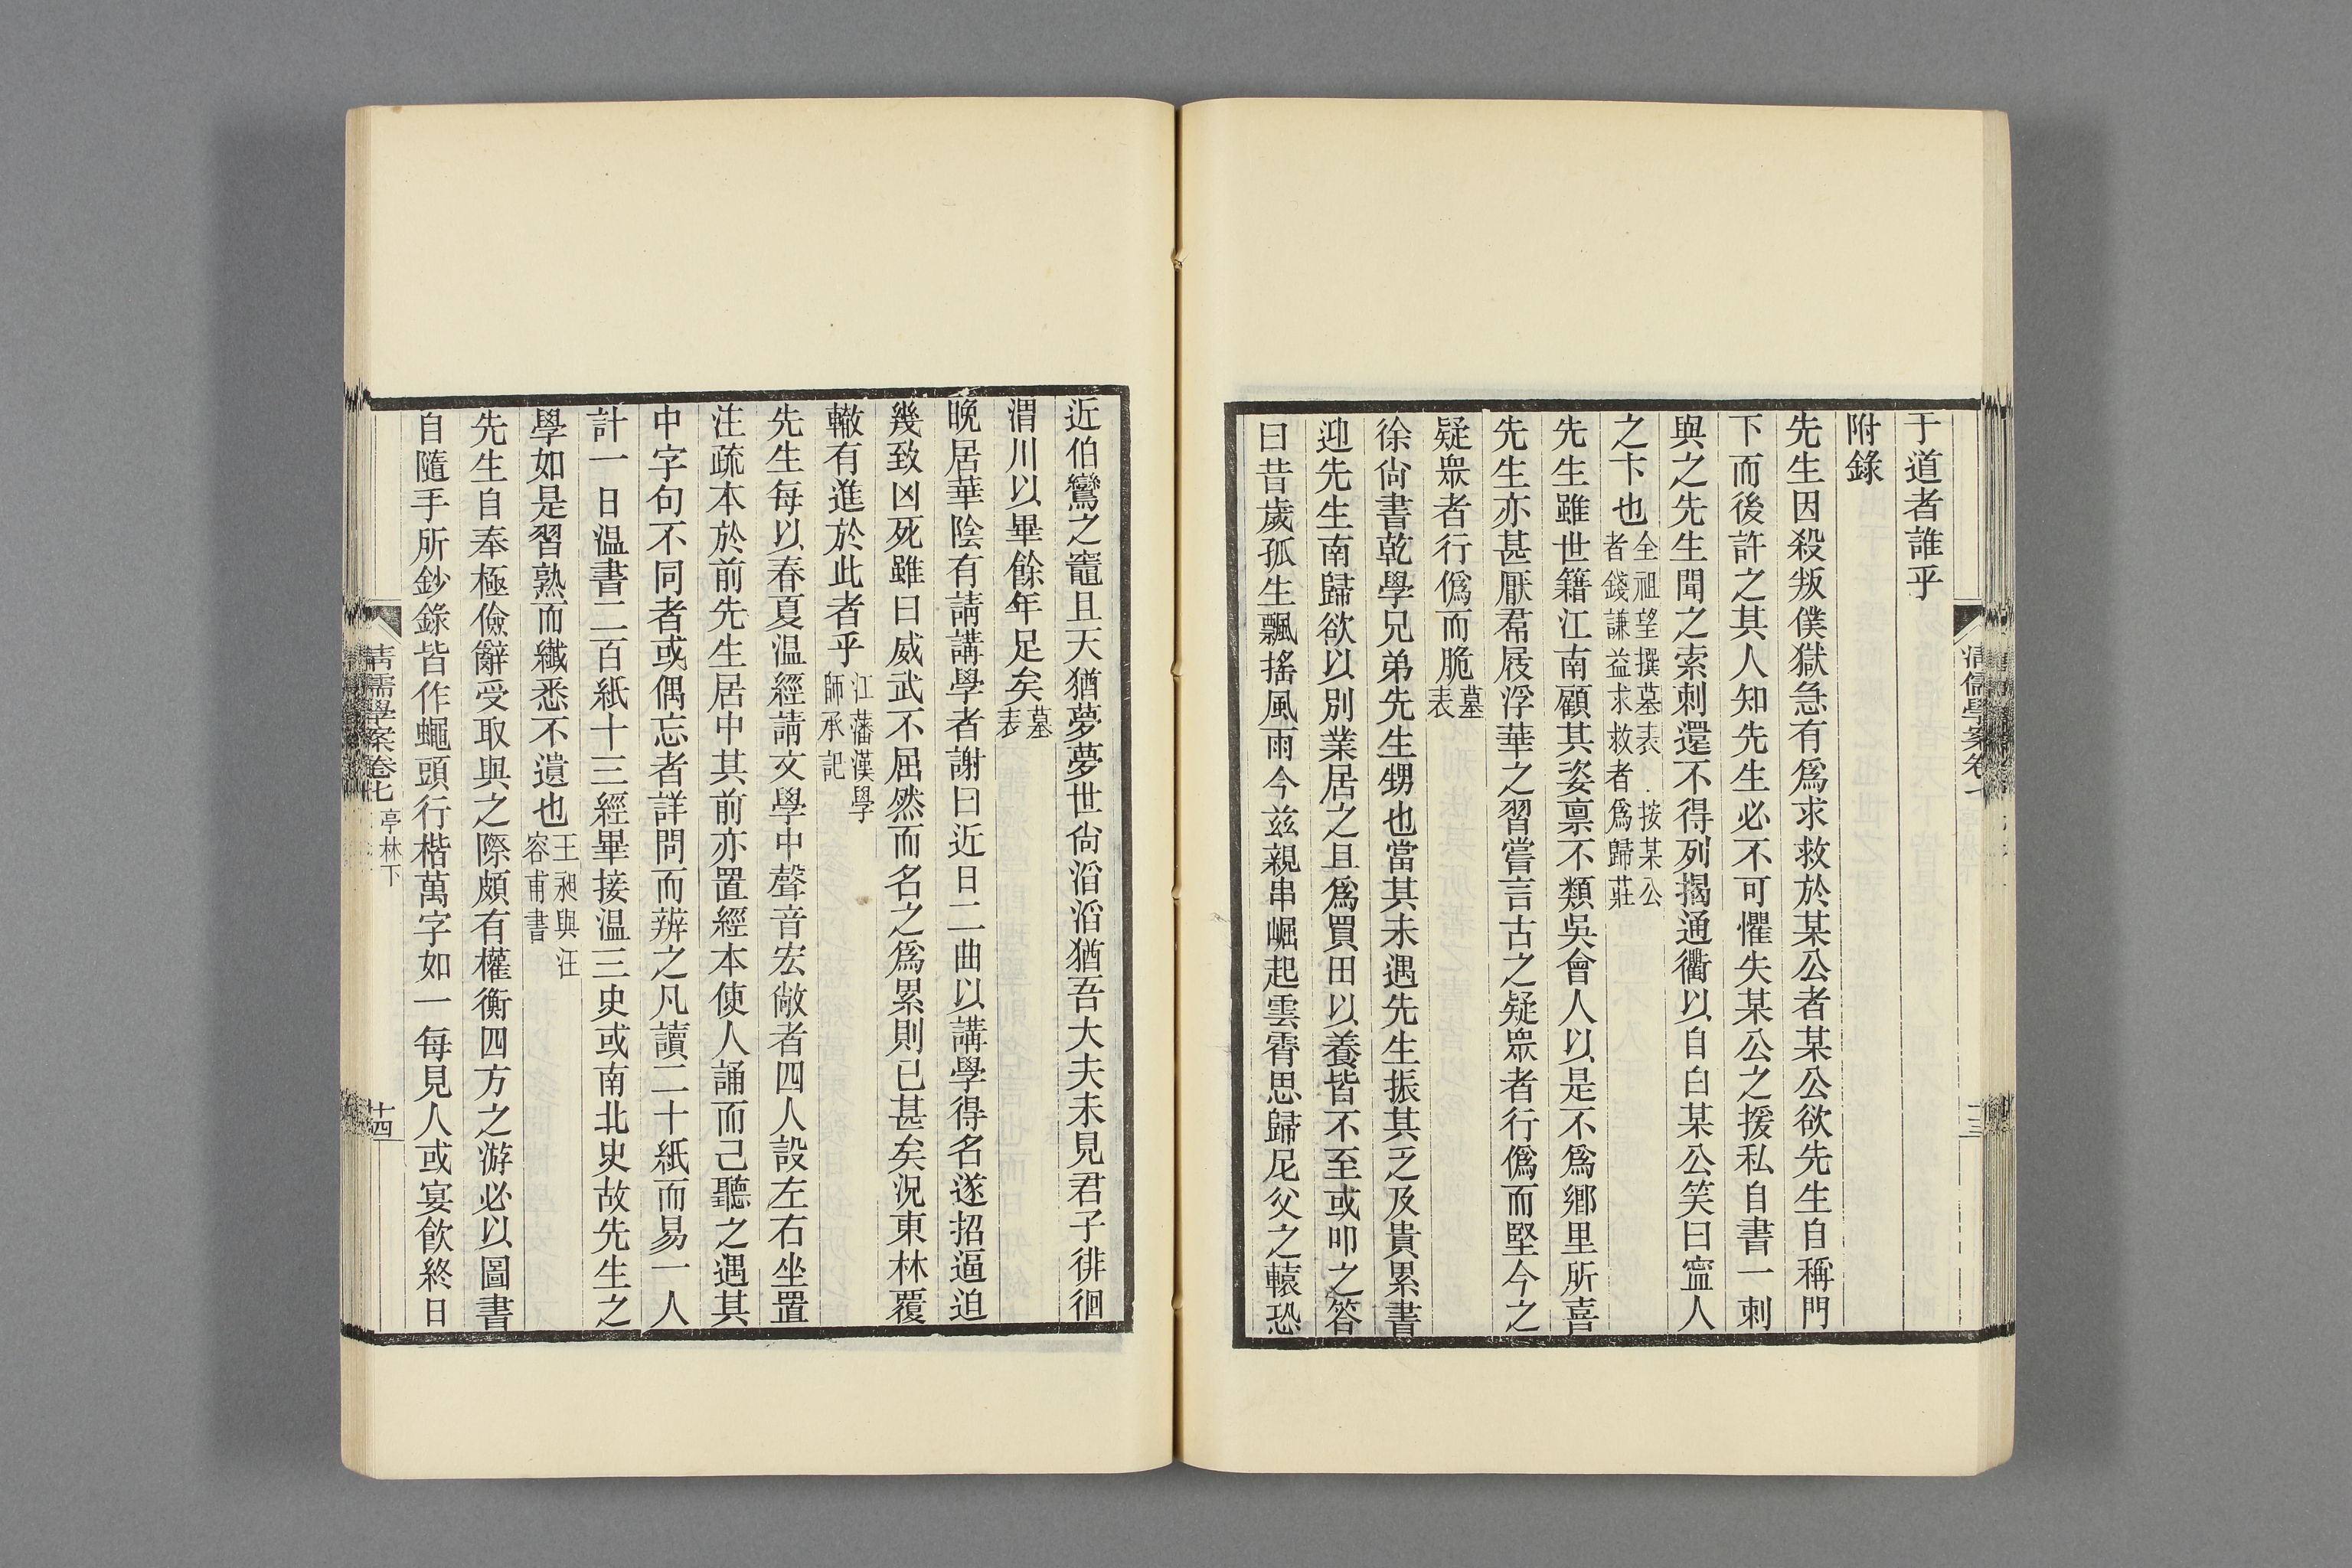 于道者誰乎
附錄
先生因殺叛僕獄急有爲求救於某公者某公欲先生自稱門
下而後許之其人知先生必不可懼失某公之援私自書一刺
與之先生聞之索刺還不得列揭通衢以自白某公笑曰甯人
之卞也全祖望撰墓表 按某公
者錢謙益求救者爲歸莊
先生雖世籍江南顧其姿稟不類吳會人以是不爲鄕里所喜
先生亦甚厭帬屐浮華之習嘗言古之疑眾者行僞而堅今之
疑眾者行僞而脆墓
表
徐尙書乾學兄弟先生甥也當其未遇先生振其乏及貴累書
迎先生南歸欲以別業居之且爲買田以養皆不至或叩之答
曰昔歲孤生飄搖風雨今茲親串崛起雲霄思歸尼父之轅恐
清儒學案卷七
近伯鸞之竈且天猶夢夢世尙滔滔猶吾大夫未見君子徘徊
渭川以畢餘年足矣墓
表
晚居華陰有請講學者謝曰近日二曲以講學得名遂招逼迫
幾致凶死雖曰威武不屈然而名之爲累則已甚矣況東林覆
轍有進於此者乎江藩漢學
師承記
先生每以春夏温經請文學中聲音宏敞者四人設左右坐置
注疏本於前先生居中其前亦置經本使人誦而己聽之遇其
中字句不同者或偶忘者詳問而辨之凡讀二十紙而易一人
計一日温書二百紙十三經畢接温三史或南北史故先生之
學如是習熟而纖悉不遺也王昶與汪
容甫書
先生自奉極儉辭受取與之際頗有權衡四方之游必以圖書
自隨手所鈔錄皆作蠅頭行楷萬字如一每見人或宴飮終日
清儒學案卷七 亭林下
十四